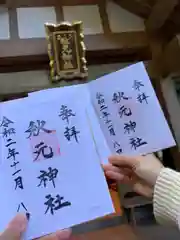 秋元神社
奉拝
秋元神社
令和二年十一月八
奉拝
秋元神社
令和二年十一月八日